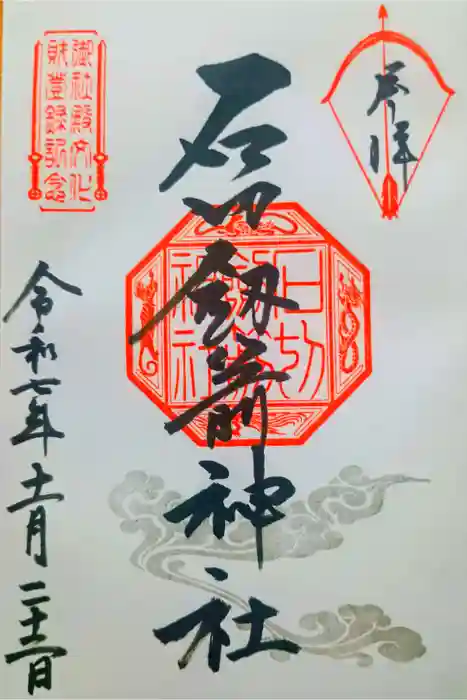 奉拝
御社殿文化
財登録記念
石切劔箭神社
石切
劔箭
神社
令和七年十一月